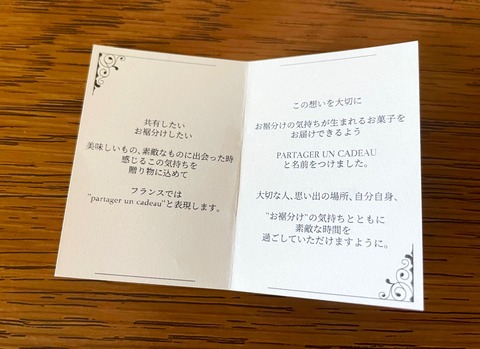 共有したい
お裾分けしたい
美味しいもの、素敵なものに出会った時
感じるこの気持ちを
贈り物に込めて
フランスでは
"partager un cadeau"と表現します。
この想いを大切に
お裾分けの気持ちが生まれるお菓子を
お届けできるよう
PARTAGER UN CADEAU
と名前をつけました。
大切な人、思い出の場所、自分自身、
"お裾分け"の気持ちとともに
素敵な時間を
過ごしていただけますように。